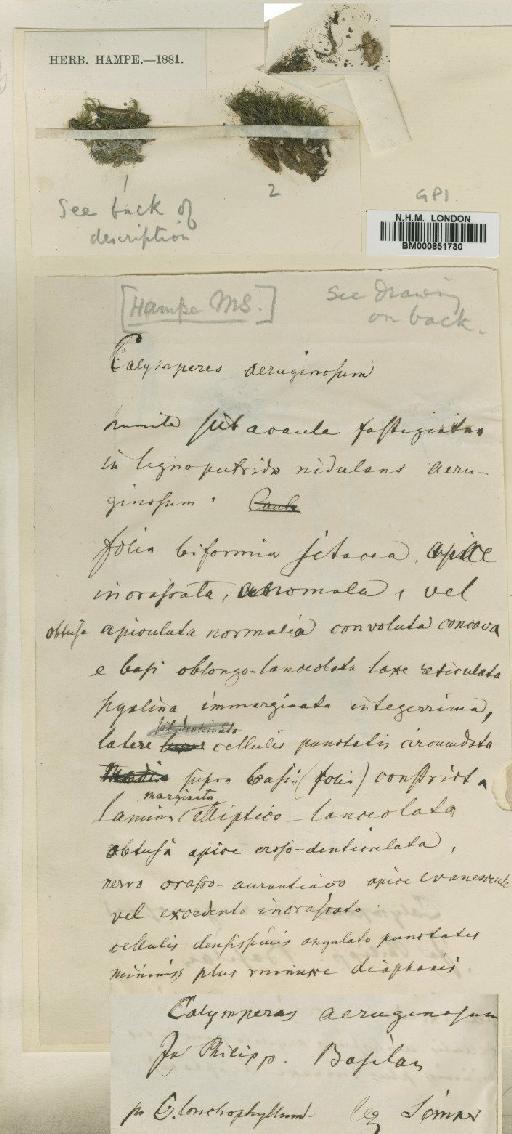 HERB. HAMPE.—1881.
1
2
See back of
description
GPI
N.H.M. LONDON
BM000851730
[Hampe MS.]
See drawing
on back.
Calymperes aeruginosum
humile subacaule fastigiatum
in ligno putrido nidulans aeru-
ginosum.
folia biformia setacea, apice
incrassata, abnormala, vel
obtusa apiculata normalia convoluta concava
e basi oblongo-lanceolata laxe reticulata
hyalina immarginata integerrima,
latere cellulis punctatis circumdata
supra basin (folii) constricta
marginata
lamina elliptico-lanceolata
obtusa apice eroso-denticulata,
nervo crasso-aurantiaco apice evanescente
vel excedente incrassato
cellulis densissimis angulato punctatis
minimis plus minusve diaphanis
Calymperes aeruginosum
Ins Philipp. Basilan
pr C. lonchophyllum. leg Semper